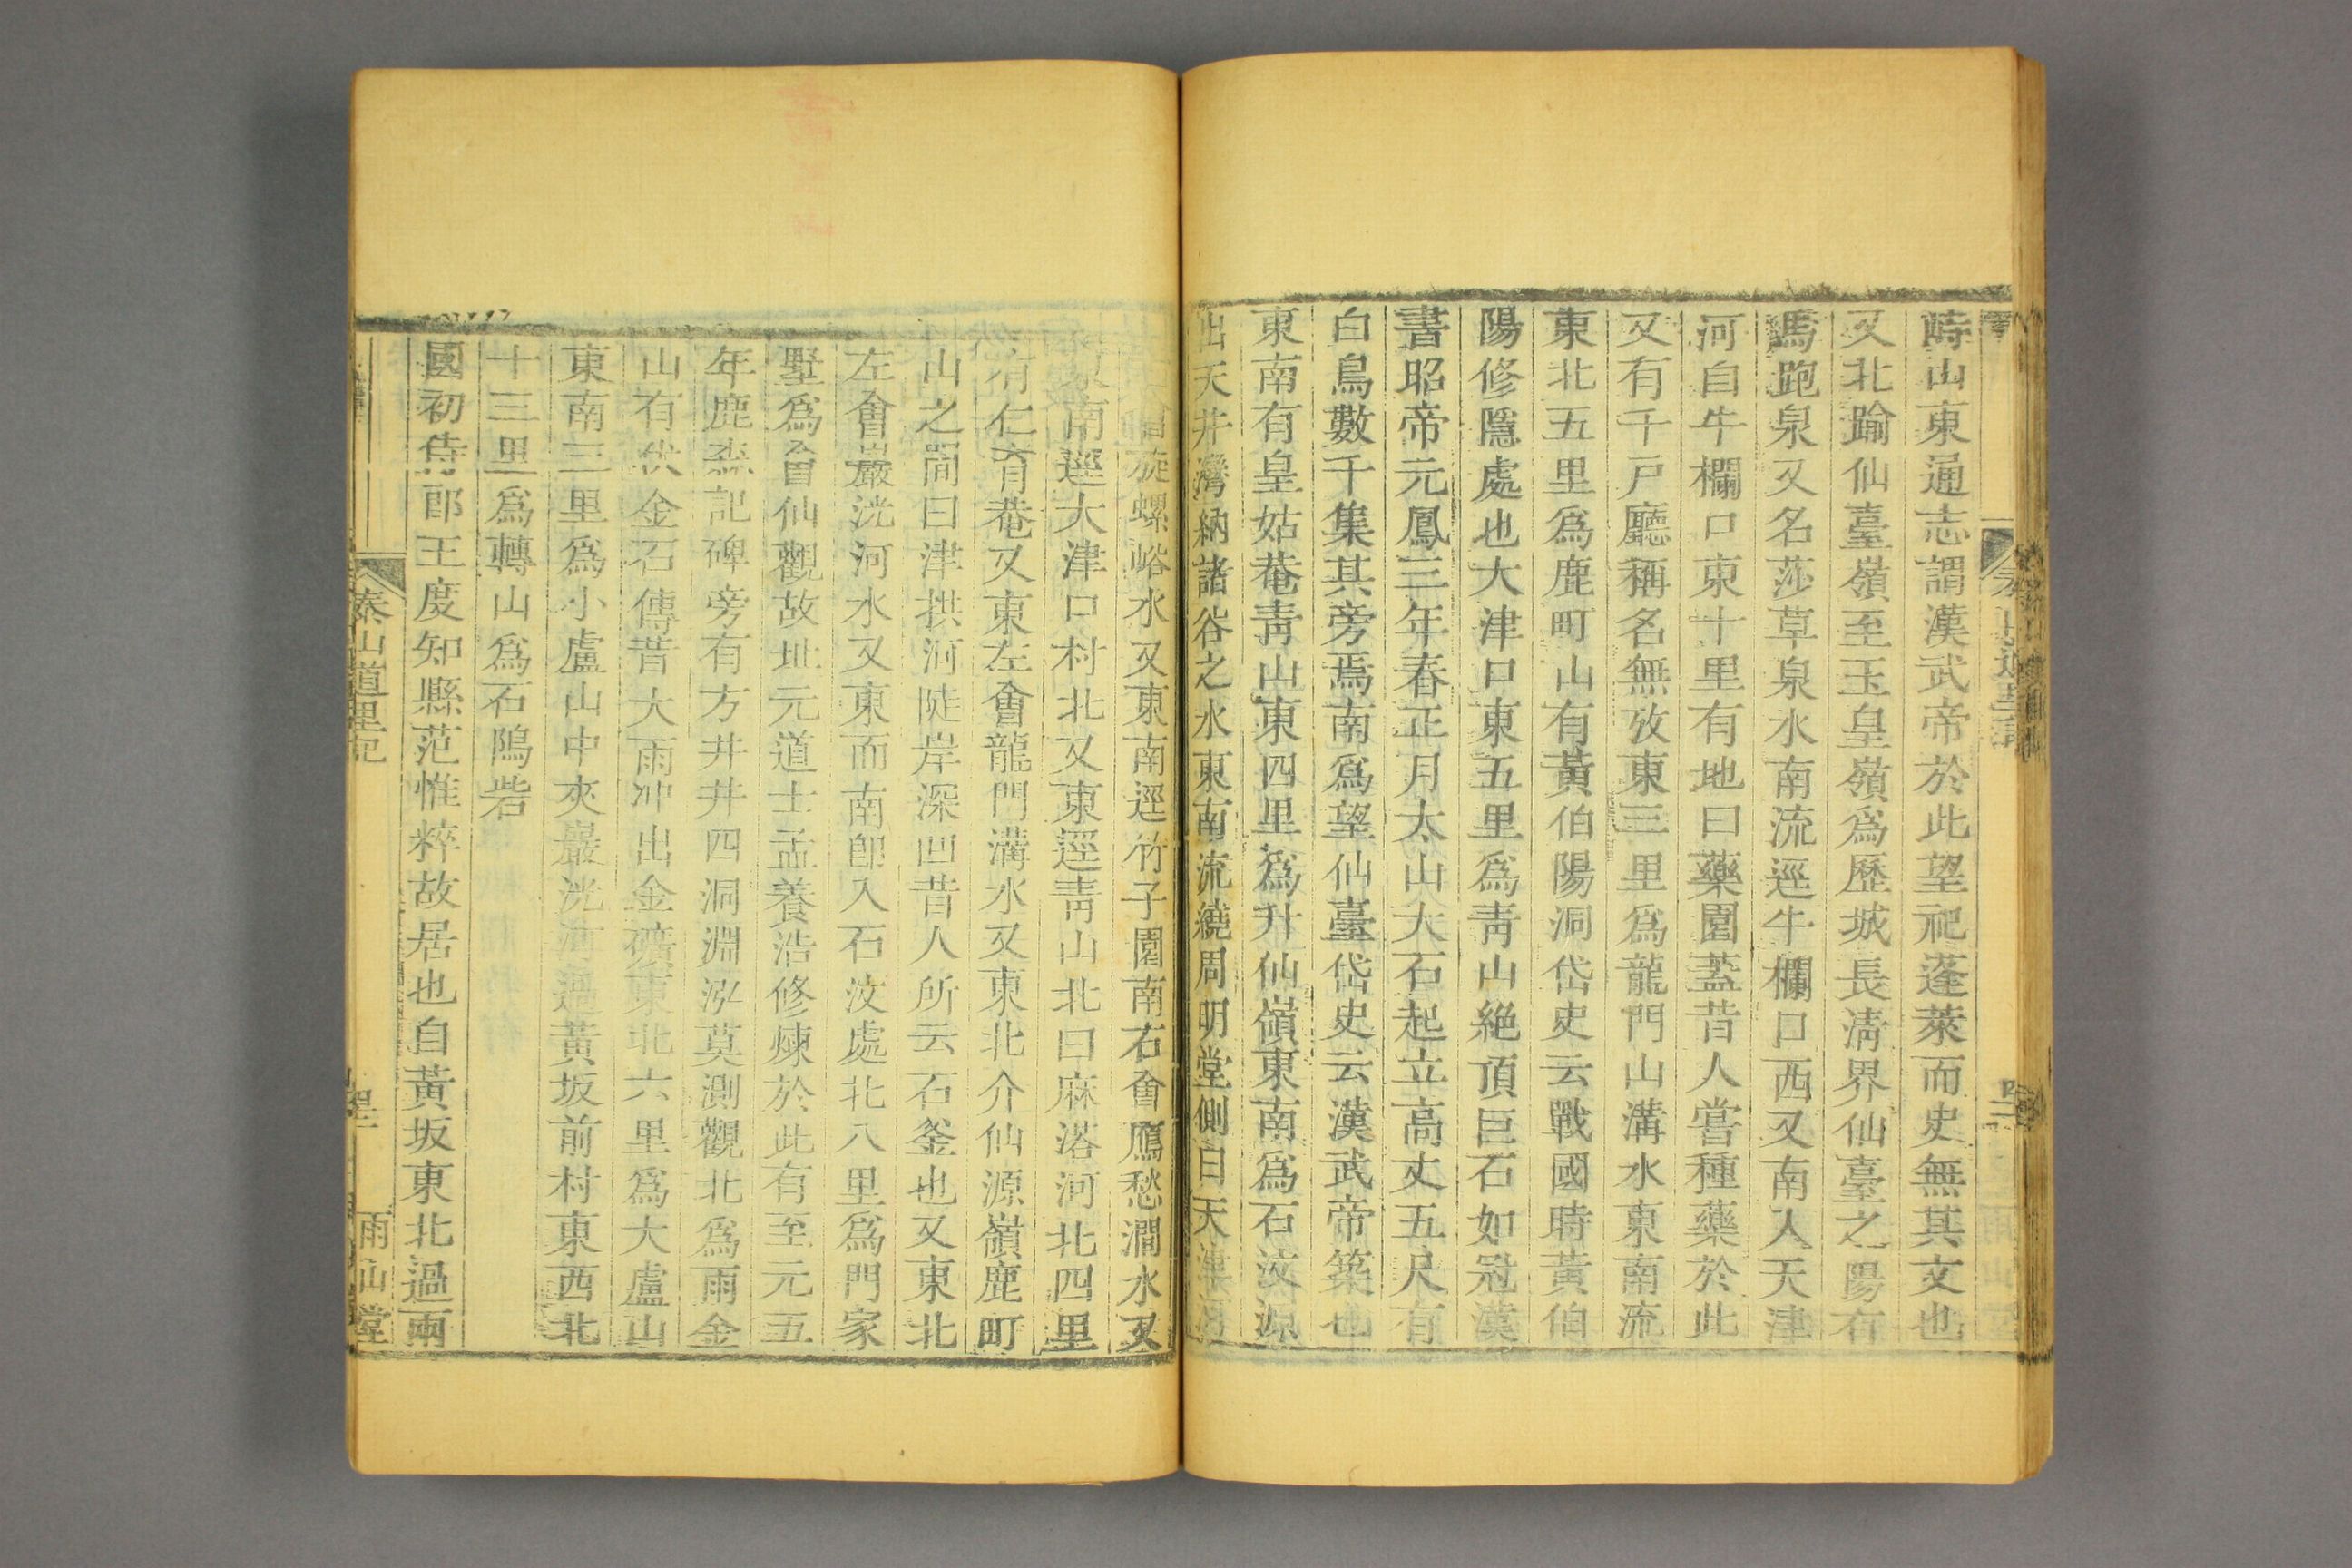 畤山東通志謂漢武帝於此望祀蓬萊而史無其文也
又北踰仙臺嶺至玉皇嶺爲歷城長淸界仙臺之陽有
馬跑泉又名莎草泉水南流逕牛欄口西又南入天津
河自牛欄口東十里有地曰藥園蓋昔人嘗種藥於此
又有千戸廳稱名無攷東三里爲龍門山溝水東南流
東北五里爲鹿町山有黃伯陽洞岱史云戰國時黃伯
陽修隱處也大津口東五里爲靑山絶頂巨石如冠漢
書昭帝元鳳三年春正月太山大石起立高丈五尺有
白鳥數千集其旁焉南爲望仙臺岱史云漢武帝築也
東南有皇姑菴靑山東四里爲升仙嶺東南爲石汶源
出天井灣納諸谷之水東南流繞周明堂側曰天
旋螺峪水又東南逕竹子園南右會鴈愁澗水又
東南逕大津口村北又東逕靑山北曰麻落河北四里
有仁育菴又東左會龍門溝水又東北介仙源嶺鹿町
山之間曰津拱河陡岸深凹昔人所云石釜也又東北
左會巖洸河水又東而南卽入石汶處北八里爲門家
墅爲會仙觀故址元道士孟養浩修煉於此有至元五
年鹿森記碑旁有方井井四洞淵泓莫測觀北爲雨金
山有伏金石傳昔大雨冲出金礦東北六里爲大盧山
東南三里爲小盧山中夾巖洸河過黃坂前村東西北
十三里爲轉山爲石隝砦
國初侍郎王度知縣范惟粹故居也自黃坂東北過兩
泰山道里記
雨山堂